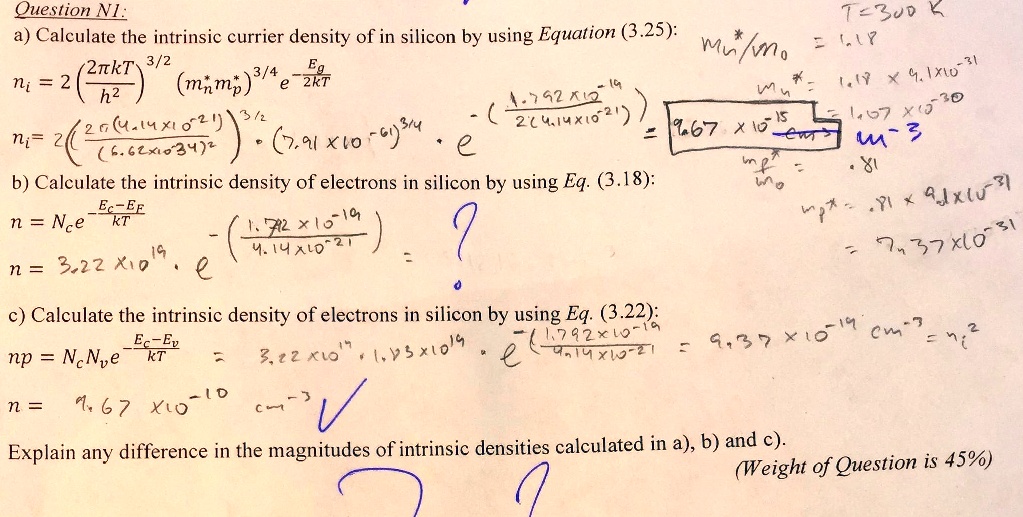 Question N1:
T=300 K
a) Calculate the intrinsic currier density of in silicon by using Equation (3.25):
mn*/mo = 1.18
ni = 2(2πkT/h2)^3/2 (m*n m*p)^3/4 e^-Eg/2kT
mn* = 1.18 x 9.1x10^-31
= 1.07 x 10^-30
ni= 2(2π(4.14x10^-21)/(6.62x10^-34)2)^3/2 · (7.91 x10^-61)^3/4 · e^-(1.792 x10^-19/2(4.14x10^-21)) = 9.67 x 10^15 m-3
mp*/mo = .81
b) Calculate the intrinsic density of electrons in silicon by using Eq. (3.18):
mp* = .81 x 9.1x10^-31
= 7.37x10^-31
n = Nce^-Ec-EF/kT
n = 3.22 x10^19 · e^-(1.792 x 10^-19/4.14x10^-21) = ?
c) Calculate the intrinsic density of electrons in silicon by using Eq. (3.22):
np = NcNve^-Ec-Ev/kT = 3.22 x10^19 · 1.83x10^19 · e^-(1.792x10^-19/4.14x10^-21 = 9.37 x10^-19 cm^-3 = ni^2
n = 9.67 x10^-10 cm^-3 ✓
Explain any difference in the magnitudes of intrinsic densities calculated in a), b) and c).
(Weight of Question is 45%)
? ?